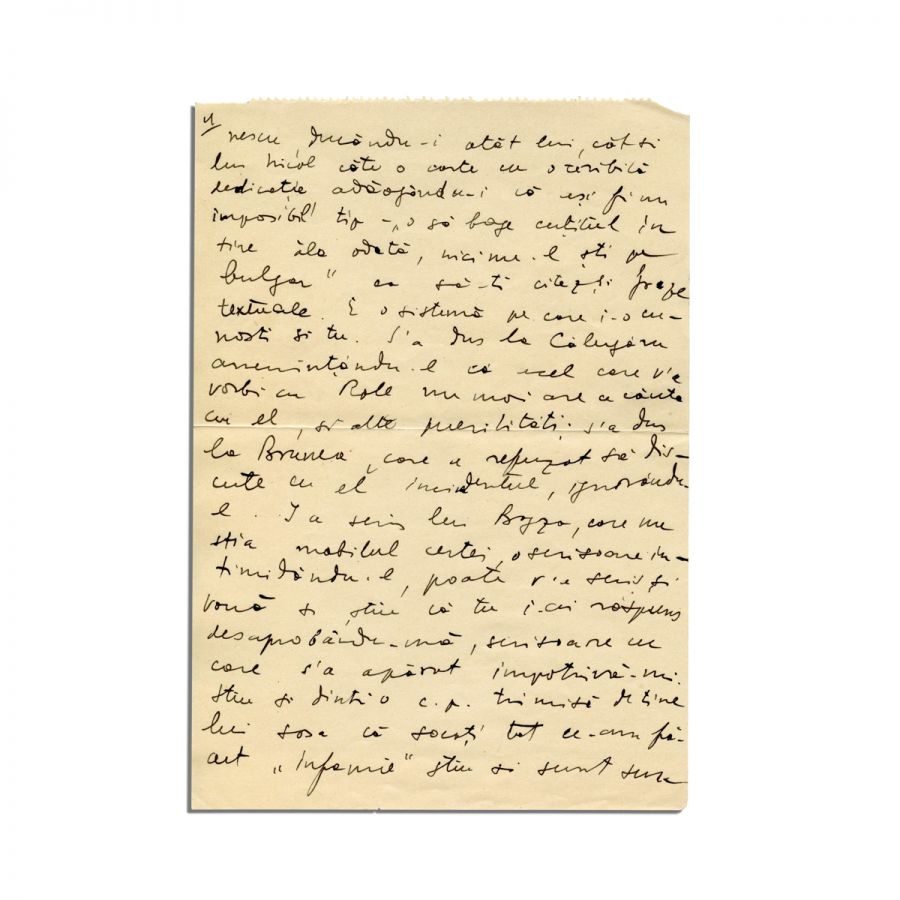 nescu, ducându-i atât lui, cât si
lui Nicol câte o carte cu o teribilă
dedicație adăogându-i că eși fi un
imposibil tip - „o să bage cuțitul în
tine ăla odată, nici nu-l ști pe
bulgar" ca să-ți citez și fraze
textuale. E o sistemă pe care i-o cu-
nosti si tu. S'a dus la Călugăru
amenintându-l că acel care v'a
vorbi cu Roll nu mai are a căuta
cu el, și alte puerilități; s'a dus
la Brunea, care a refuzat să dis-
cute cu el incidentul, ignorându-
l. I a scris lui Bogza, care nu
știa mobilul certei, o scrisoare in-
timidându-l, poate v'a scris și
vouă si știu că tu i-ai răspuns
desaprobându-mă, scrisoare cu
care s'a apărat împotrivă-mi.
Știu si dintr'o c.p. trimisă de tine
lui Sașa că socoți tot ce-am fă-
cut „infamie" știu si sunt